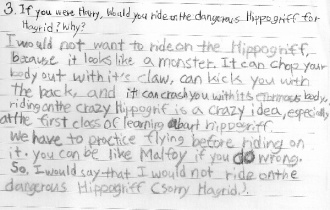 3. If you were Harry, Would you ride on the dangerous Hippogriff for
Hagrid? Why?
I would not want to ride on the Hippogriff,
because it looks like a monster. It can chop your
body out with it's claw, can kick you with
the back, and it can crash you with its body,
riding on the crazy Hippogrif is a crazy idea, especially
at the first class of learning abart hippogriff.
We have to practice flying before riding on
it. you can be like Malfoy if you do wrong.
So, I would say that I would not ride on the
dangerous Hippogriff (Sorry Hagrid.).